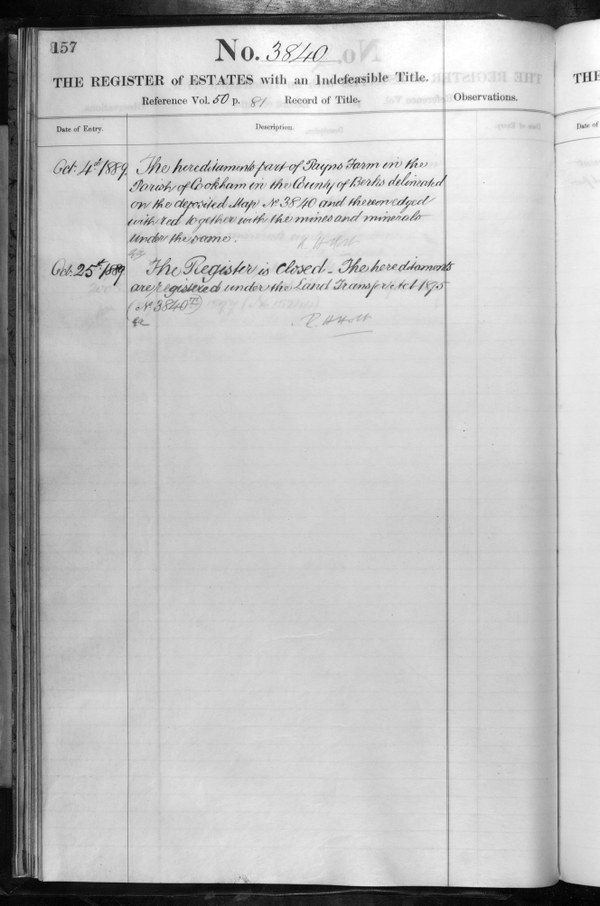 157
No. 3840
THE REGISTER of ESTATES with an Indefeasible Title.
Reference Vol. 50 p. 81 Record of Title.
Observations.
Date of Entry.
Description.
Oct. 4th 1889 The hereditaments part of Payns Farm in the
Parish of Cookham in the County of Berks delineated
on the deposited Map No 3840 and thereon edged
with red together with the mines and minerals
under the same.
R. H Holt
Oct. 25th 1889 The Register is Closed - The hereditaments
are registered under the Land Transfer Act 1875
(No 3840)
R. H Holt
THE
Date of